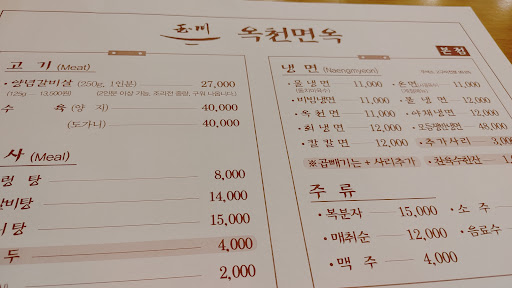 玉川 옥천면옥
본점
고 기 (Meat)
·양념갈비살 (250g, 1인분) 27,000
(125g 13,500원) (2인분 이상 가능, 조리전 중량, 구워 나옵니다.)
수 육 (양 지) 40,000
(도가니) 40,000
사 (Meal)
탕 8,000
갈비탕 14,000
탕 15,000
두 4,000
2,000
냉 면 (Naengmyeon)
·물냉면 11,000
·비빔냉면 11,000
·옥 천 면 11,000
·회 냉 면 12,000
12,000
·온면 11,000
12,000
·야채냉면 12,000
·모듬쟁반냉면 48,000
·추가사리 3,000
※곱빼기는 + 사리추가
주 류
·복분자 15,000
·매취순 12,000
·맥 주 4,000
·소 주
·음료수